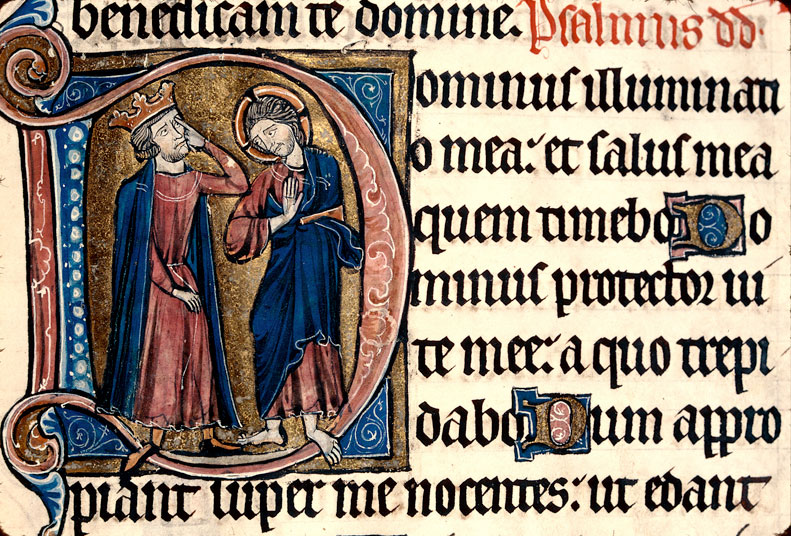 benedicam te domine. Psalmus dd.
Dominus illuminati
o mea: et salus mea
quem timebo Do
minus protector ui
te mee: a quo trepi
dabo Dum appro
piant super me nocentes: ut edant